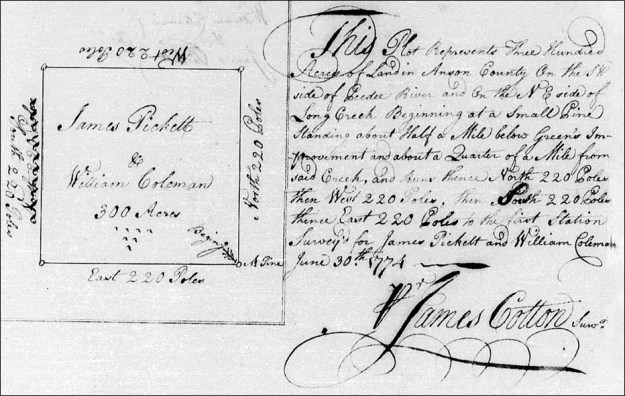 West 220 Poles
James Pickett
&
William Coleman
300 Acres
Begining
A Pine
North 220 Poles
South 220 Poles
East 220 Poles
This Plot Represents Three Hundred
Acres of Land in Anson County On the SW
side of Peedee River and On the N E side of
Long Creek Beginning at a Small Pine
Standing about Half a Mile below Green's Im-
provement and about a Quarter of a Mile from
said Creek, and Runs thence North 220 Poles
then West 220 Poles, then South 220 Poles
thence East 220 Poles to the first Station
Survey'd for James Pickett and William Coleman
June 30th 1774
Pr
James Cotton Survr